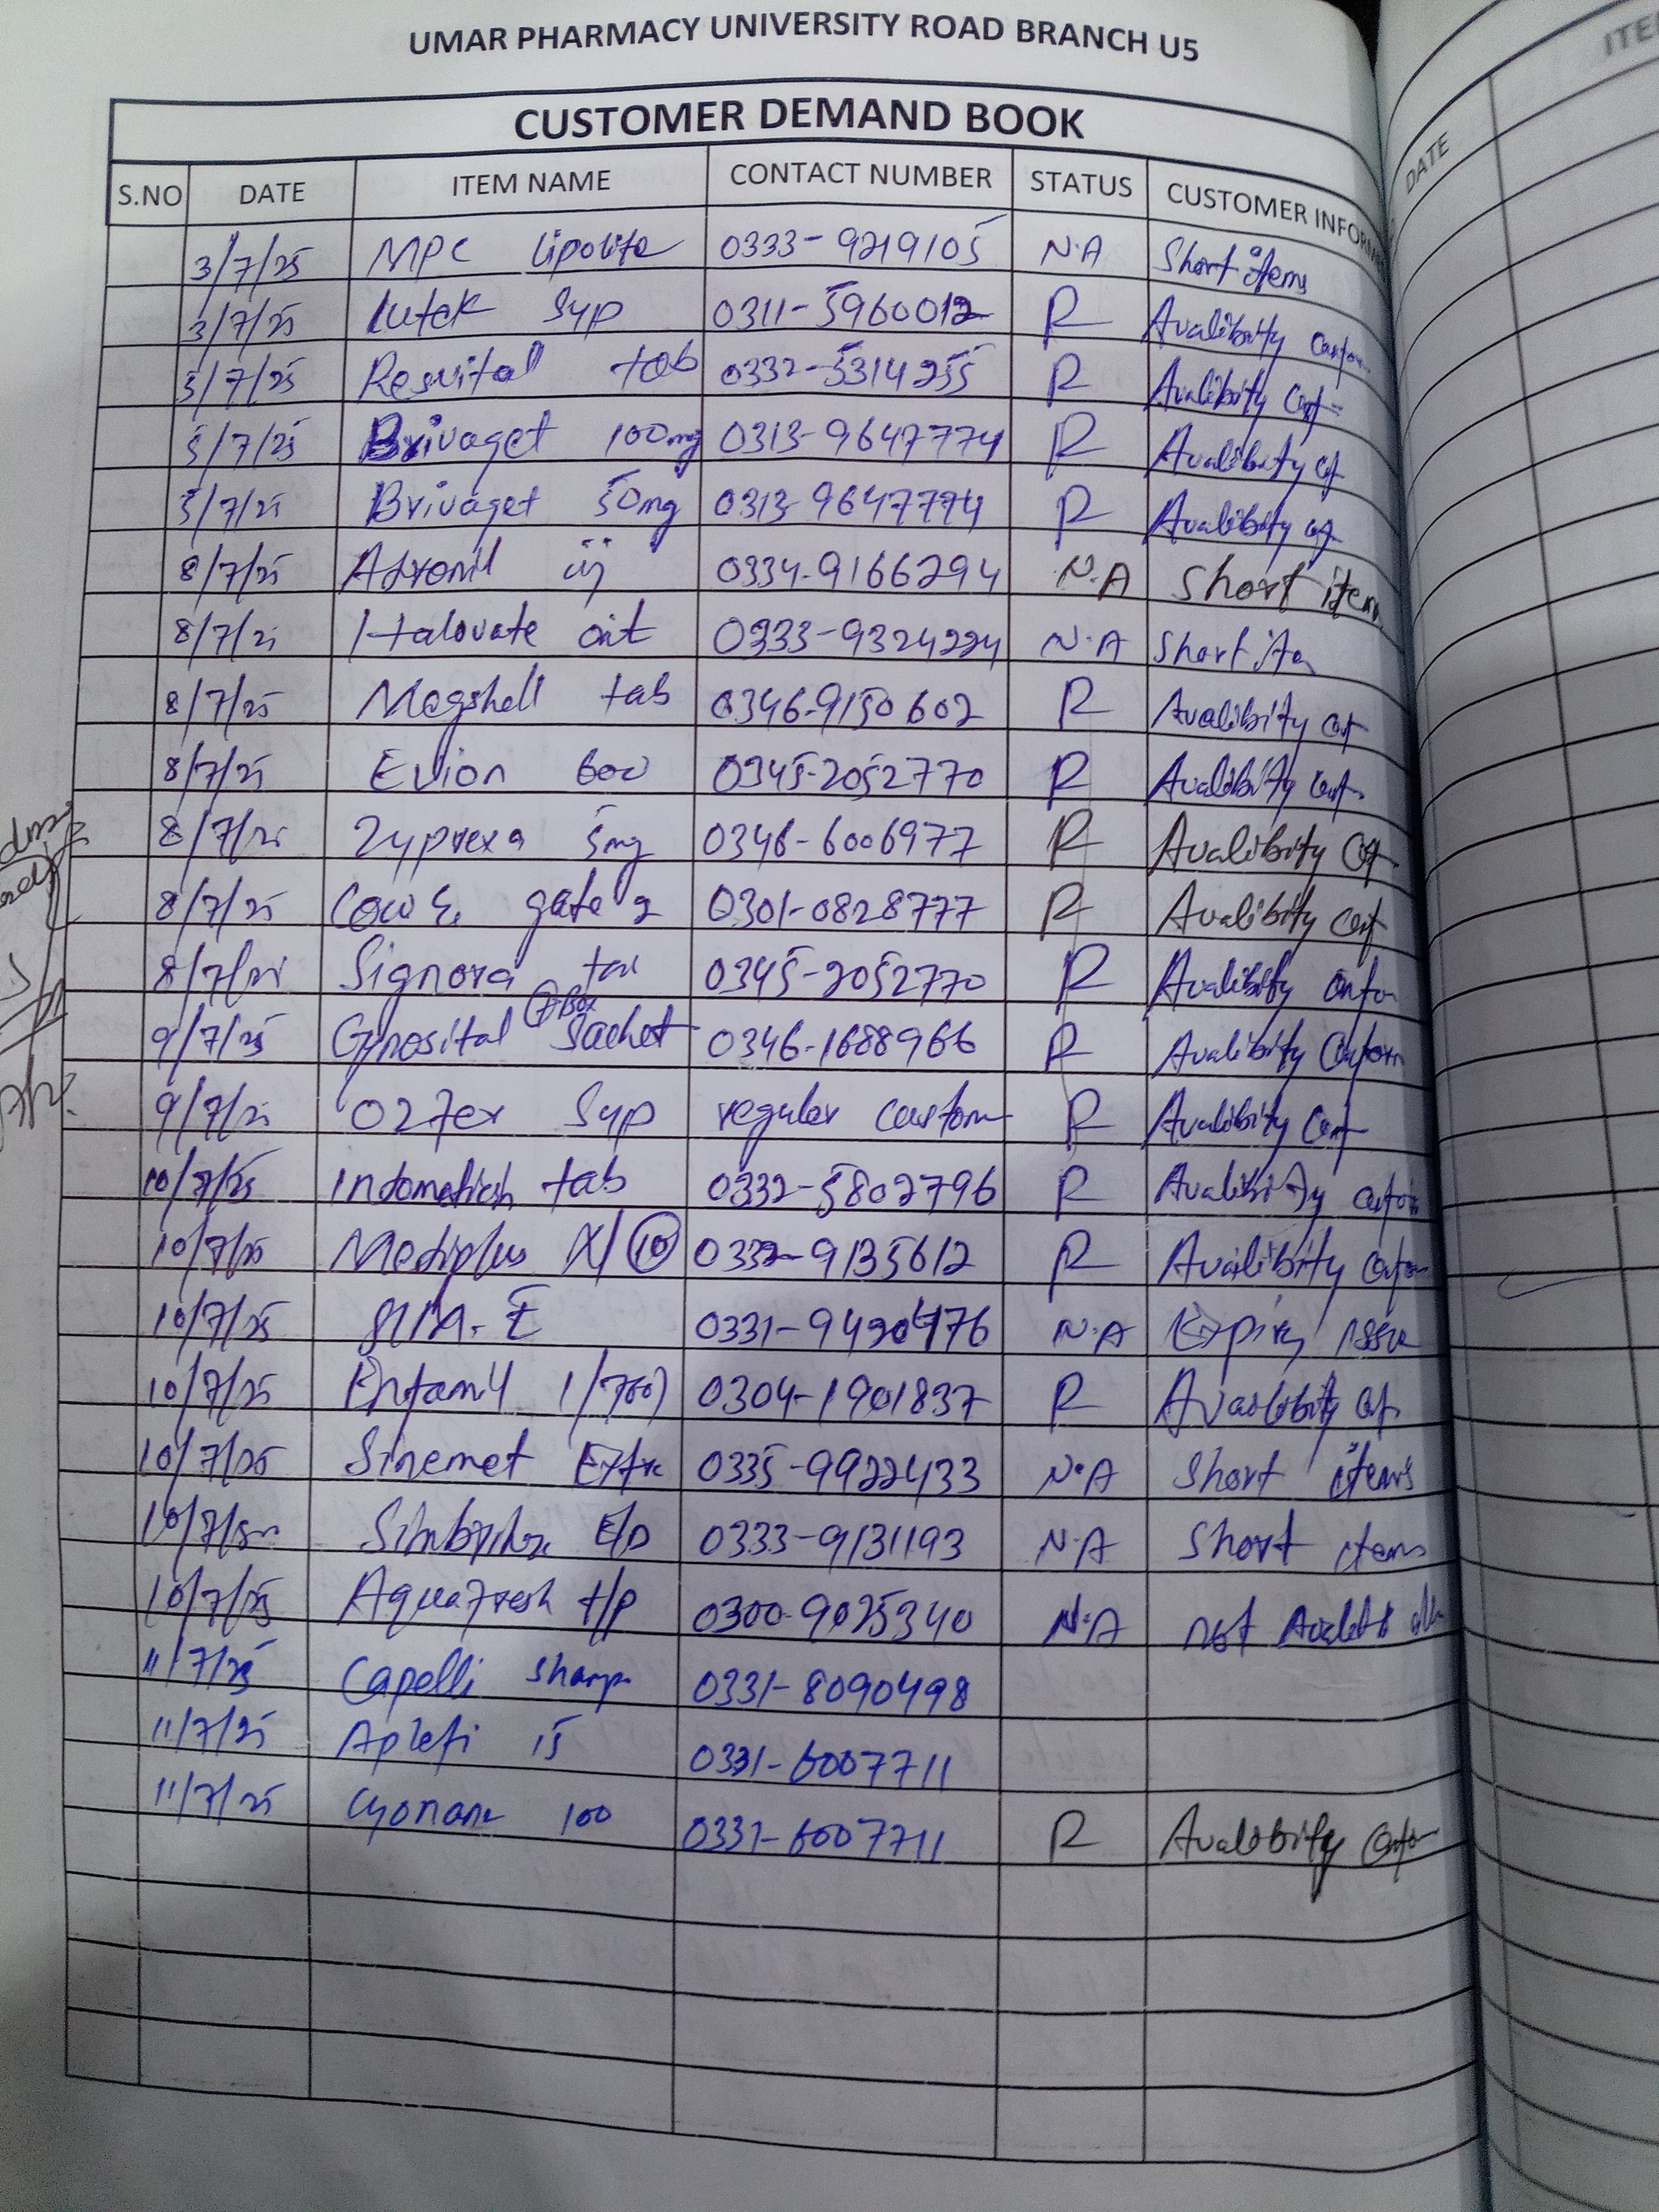 UMAR PHARMACY UNIVERSITY ROAD BRANCH U5
CUSTOMER DEMAND BOOK
S.NO DATE ITEM NAME CONTACT NUMBER STATUS CUSTOMER INFORM
3/7/25 MPC Lipolite 0333-9219105 N.A Short items
3/7/25 Syp 0311-5960012 R Avalibity
5/7/25 Resvital tab 0332-5314255 R Avalibity
5/7/25 Brivaget 100mg 0313-9647774 R Avalibity
5/7/25 Brivaget 50mg 0313-9647774 R Avalibity
8/7/25 inj 0334-9166294 N.A Short item
8/7/25 Halovate oint 0333-9324224 N.A Short
8/7/25 Magshell tab 0346-9150602 R Avalibity
8/7/25 Evion 600 0345-2052770 R Avalibity
8/7/25 Zyprexa 5mg 0346-6006977 R Avalibity
8/7/25 Cow & gate 2 0301-0828777 R Avalibity
8/7/25 Signora 0345-2052770 R Avalibity
7 Box
9/7/25 Gynosital Sachet 0346-1688966 R Avalibity Conform
9/7/25 Syp regular custom R Avalibity
10/7/25 tab 0332-5802796 R Avalibity
10/7/25 Mediplus 10 0332-9135612 R Avalibity
10/7/25 0331-9420476 N.A Expiry issue
10/7/25 Enfamil 1/ 0304-1901837 R Avalibity
10/7/25 Sinemet Extra 0335-9922433 N.A Short items
10/7/25 E/D 0333-9131193 N.A Short items
10/7/25 Aquafresh t/p 0300-9025340 N.A not
11/7/25 Capelli Shamp 0331-8090498
11/7/25 15 0331-6007711
11/7/25 100 0331-6007711 R Avalibity
DATE
ITE